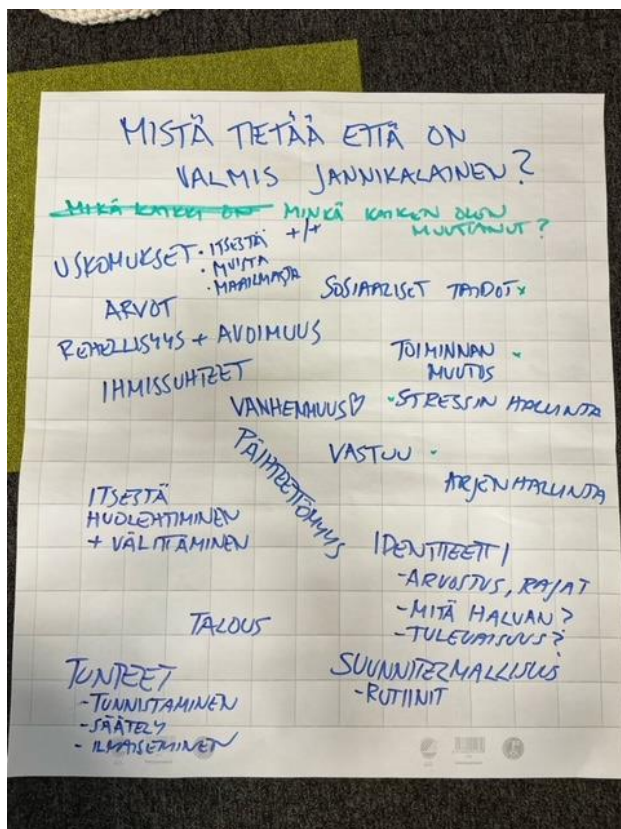 MISTÄ TIETÄÄ ETTÄ ON
VALMIS JANNIKALAINEN?
MIKÄ KAIKKI ON MINKÄ KAIKEN OLON
MUUTTANUT?
USKOMUKSET · ITSESTÄ +/+
· MUISTA
· MAAILMASTA
SOSIAALISET TAIDOT x
ARVOT
REHELLISYYS + AVOIMUUS
TOIMINNAN
MUUTOS
IHMISSUHTEET
VANHEMMUUS♡
· STRESSIN HALLINTA
PÄIHTEETTÖMYYS
VASTUU ·
ARJENHALLINTA
ITSESTÄ
HUOLEHTIMINEN
+ VÄLITTÄMINEN
IDENTITEETTI
- ARVOSTUS, RAJAT
- MITÄ HALUAN?
- TULEVAISUUS?
TALOUS
SUUNNITELMALLISUUS
- RUTIINIT
TUNTEET
- TUNNISTAMINEN
- SÄÄTELY
- ILMAISEMINEN